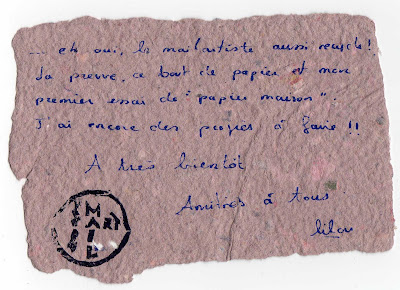 ... eh oui, le mailartiste aussi recycle !
La preuve, ce bout de papier est mon
premier essai de "papier maison".
J'ai encore des progrès à faire !!
A très bientôt
Amitiés à tous
lilou
MAIL
ART